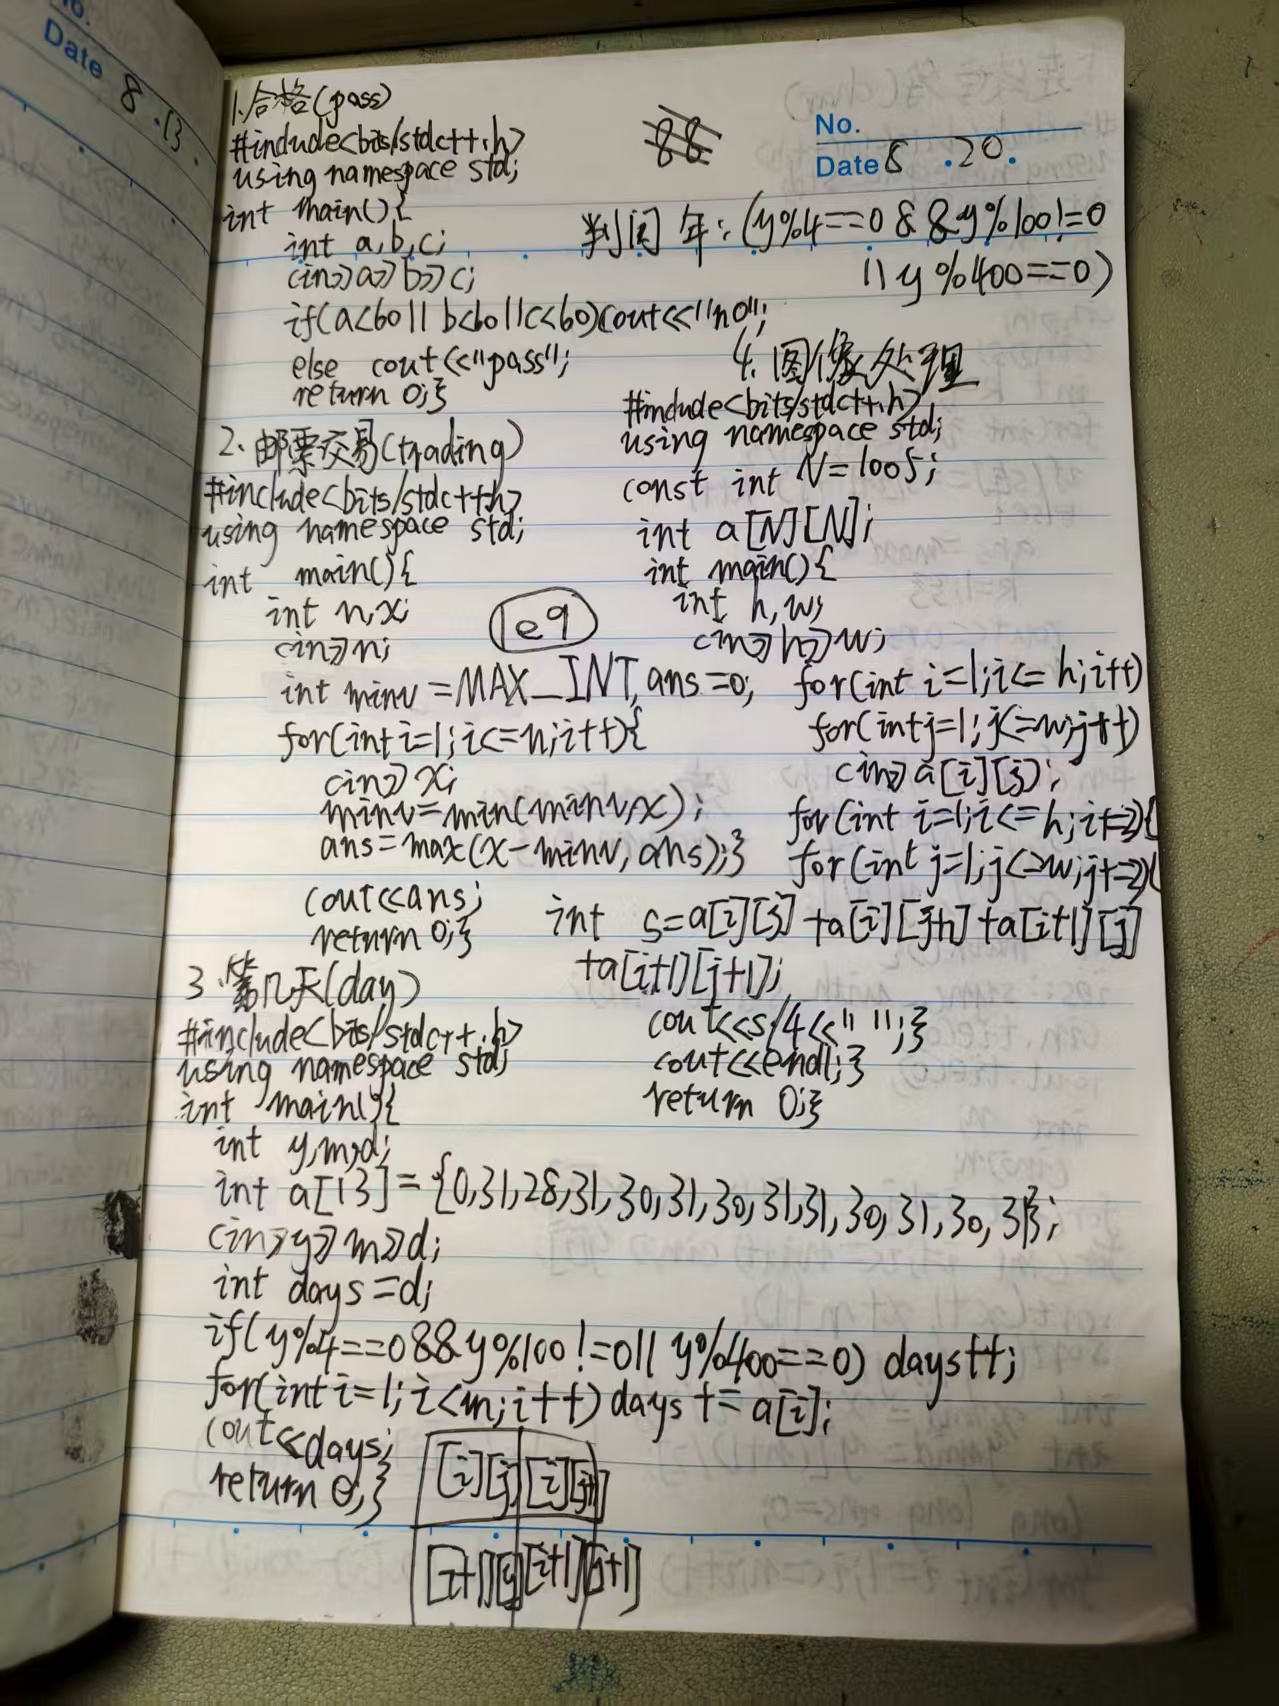 Date 8 .13.
No.
Date 8 .20.
1.合格(pass)
#include<bits/stdc++.h>
using namespace std;
int main(){
int a,b,c;
cin>>a>>b>>c;
if(a<60||b<60||c<60)cout<<"no";
else cout<<"pass";
return 0;}
88
判闰年:(y%4==0&&y%100!=0
||y%400==0)
2.邮票交易(trading)
#include<bits/stdc++.h>
using namespace std;
int main(){
int n,x;
cin>>n;
1e9
int minv=MAX_INT,ans=0;
for(int i=1;i<=n;i++){
cin>>x;
minv=min(minv,x);
ans=max(x-minv,ans);}
cout<<ans;
return 0;}
3.第几天(day)
#include<bits/stdc++.h>
using namespace std;
int main(){
int y,m,d;
int a[13]={0,31,28,31,30,31,30,31,31,30,31,30,31};
cin>>y>>m>>d;
int days=d;
if(y%4==0&&y%100!=0||y%400==0) days++;
for(int i=1;i<m;i++)days+=a[i];
cout<<days;
return 0;}
[i][j] [i][j+1]
[i+1][j] [i+1][j+1]
4.图像处理
#include<bits/stdc++.h>
using namespace std;
const int N=1005;
int a[N][N];
int main(){
int h,w;
cin>>h>>w;
for(int i=1;i<=h;i++)
for(int j=1;j<=w;j++)
cin>>a[i][j];
for(int i=1;i<=h;i+=2){
for(int j=1;j<=w;j+=2){
int s=a[i][j]+a[i][j+1]+a[i+1][j]
+a[i+1][j+1];
cout<<s/4<<" ";}
cout<<endl;}
return 0;}